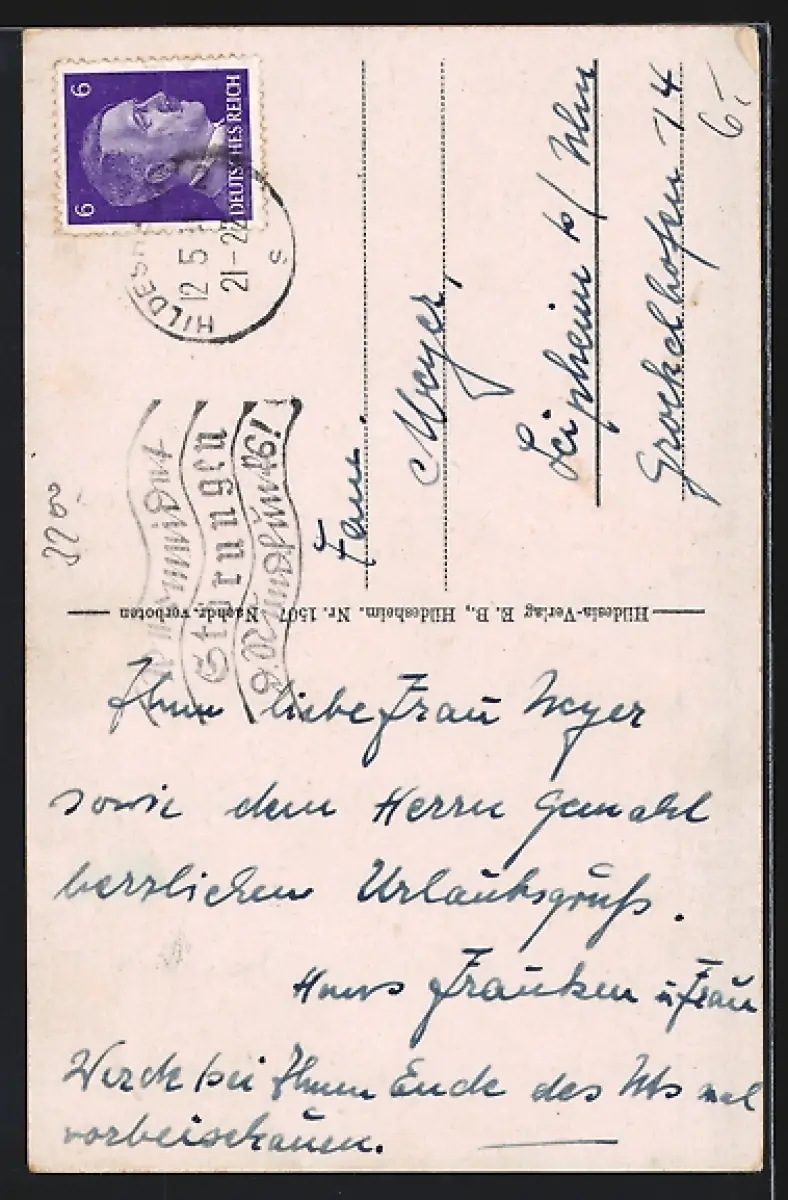 6
6
DEUTSCHES REICH
12 5
21-22
s
Störungen
Hildesia-Verlag E. B., Hildesheim. Nr. 1507 Nachdr. verboten
Meyer,
Leipheim b/ Ulm
14
6,-
Ihnen liebe Frau Meyer
sowie dem Herrn Gemahl
herzlichen Urlaubsgruß.
Hans Franken u Frau
Werde bei Ihnen Ende des Mts mal
vorbeischauen.